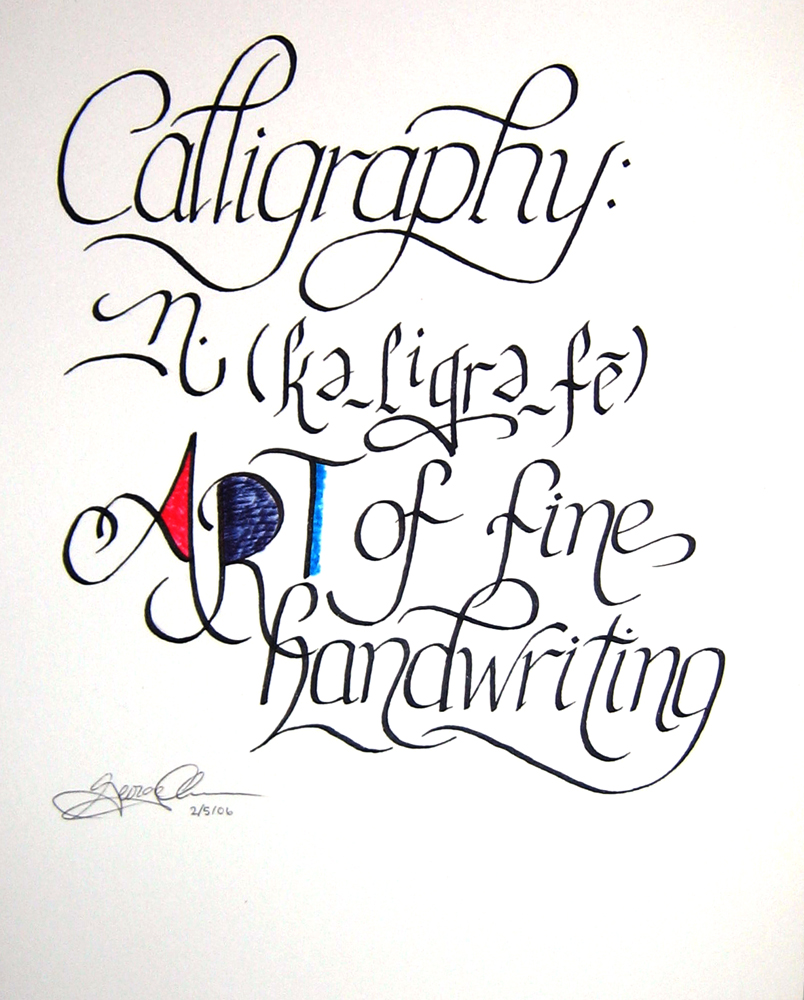 Calligraphy:
n. (kə-ligrə-fē)
ART of fine
handwriting
George
2/5/06